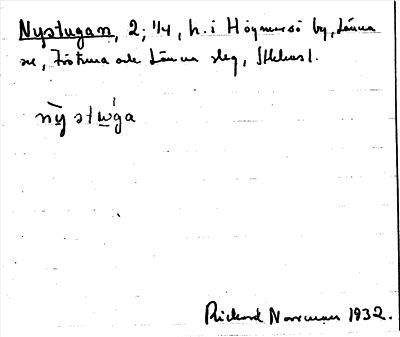 Nystugan, 2; 1/4, h. i Högmarsö by, Länna
sn, Frötuna och Länna slg, Sthlms l.
nỳstw̲̍ga
Rickard Norrman 1932.